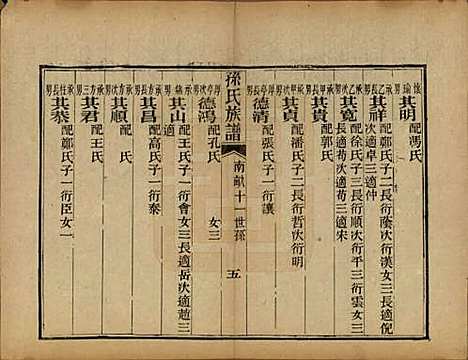 懷瑜長男 其明 配馮氏
承乙長男 其祥 配鄭氏子二長衍蔭次衍漢女三長適倪
次適卓三適仲
承乙次男 其寬 配徐氏子三長衍順次衍平三衍雲女三
長適苟次適苟三適宋
承甲長男 其貴 配郭氏
承甲次男 其貞 配潘氏子二長衍哲次衍明
厚亭長男 德清 配張氏子一衍讓
孫氏族譜 南畝十一世孫 五
厚亭次男 德鴻 配孔氏 女三
承方長男 其山 配王氏子一衍會女三長適岳次適趙三
適
承方長男 其昌 配高氏子一衍秦
承方次男 其順 配 氏
承方三男 其君 配王氏
承柱長男 其泰 配鄭氏子一衍臣女一